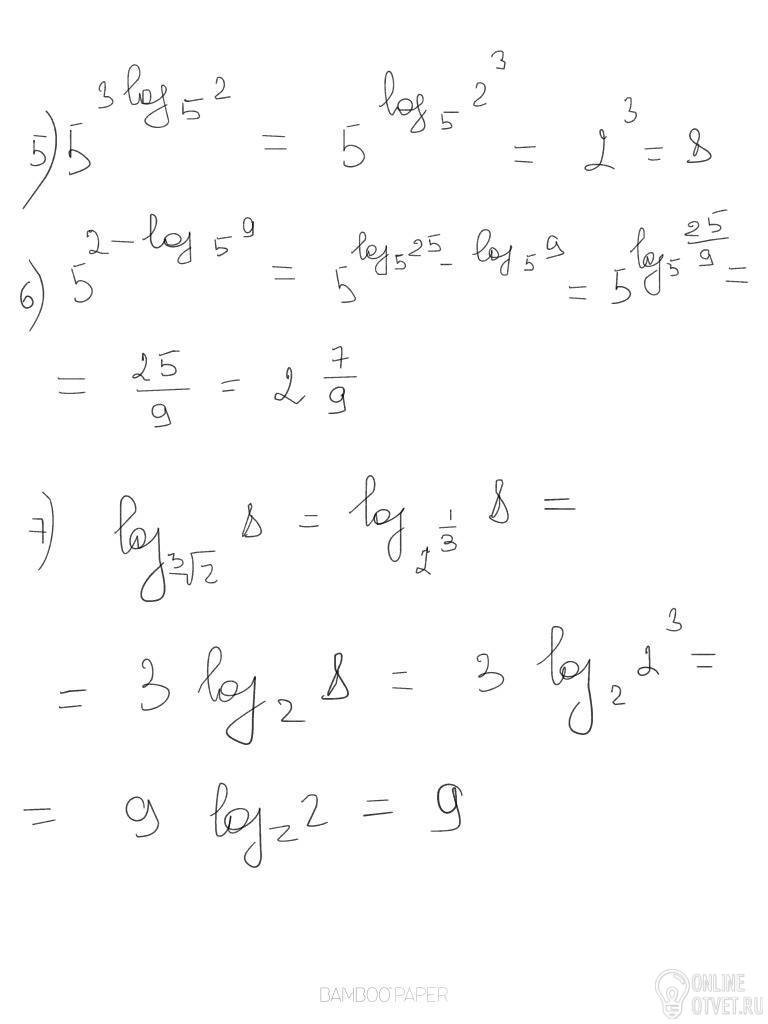 5) 5^{3 log_5 2} = 5^{log_5 2^3} = 2^3 = 8
6) 5^{2 - log_5 9} = 5^{log_5 25 - log_5 9} = 5^{log_5 \frac{25}{9}} =
= \frac{25}{9} = 2 \frac{7}{9}
7) log_{\sqrt[3]{2}} 8 = log_{2^{\frac{1}{3}}} 8 =
= 3 log_2 8 = 3 log_2 2^3 =
= 9 log_2 2 = 9
BAMBOO PAPER
ONLINE
OTVET.RU